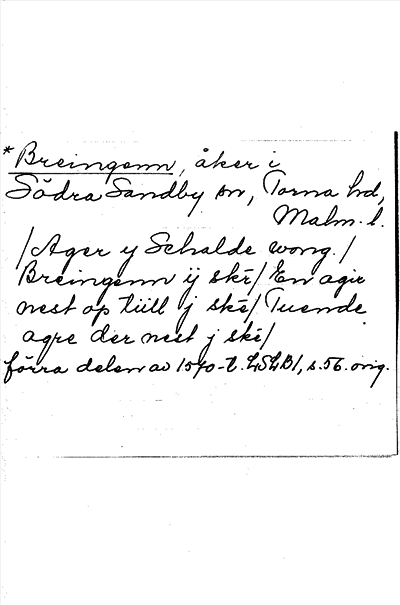 * Breingenn, åker i
Södra Sandby sn, Torna hd,
Malm. l.
/Ager y Schalde wong./
Breingenn ij ske/ En agir
nest op tiill j ske/ Tuende
agre der nest j ske/
förra delen av 1570-t. LSLB1, s. 56. orig.